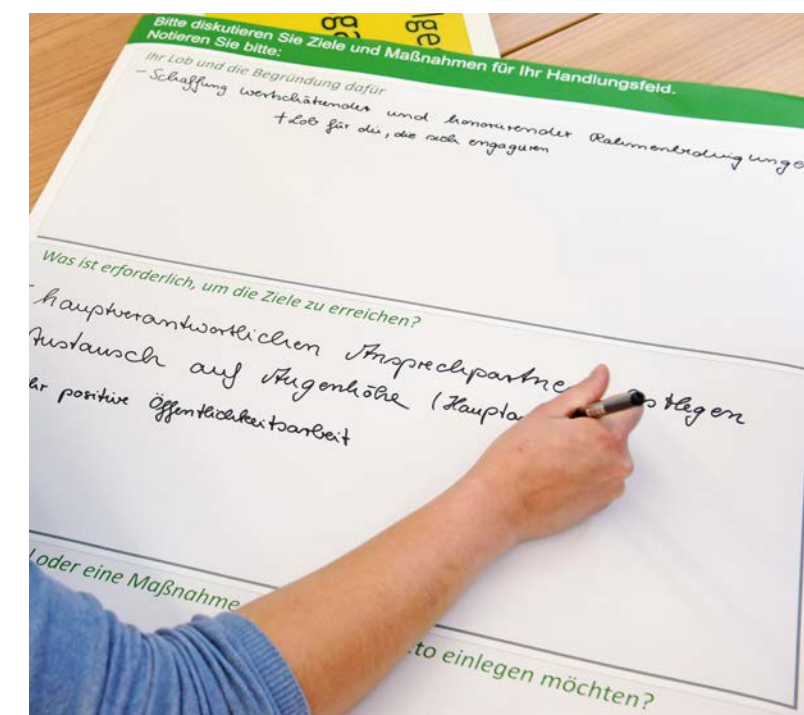 lge
ga
ga
Bitte diskutieren Sie Ziele und Maßnahmen für Ihr Handlungsfeld.
Notieren Sie bitte:
Ihr Lob und die Begründung dafür
- Schaffung wertschätzender und honorierender Rahmenbedingunge
+ Lob für die, die sich engagieren
Was ist erforderlich, um die Ziele zu erreichen?
- hauptverantwortlichen Ansprechpartne stlegen
Austausch auf Augenhöhe (Haupta
hr positive Öffentlichkeitsarbeit
oder eine Maßnahme
to einlegen möchten?